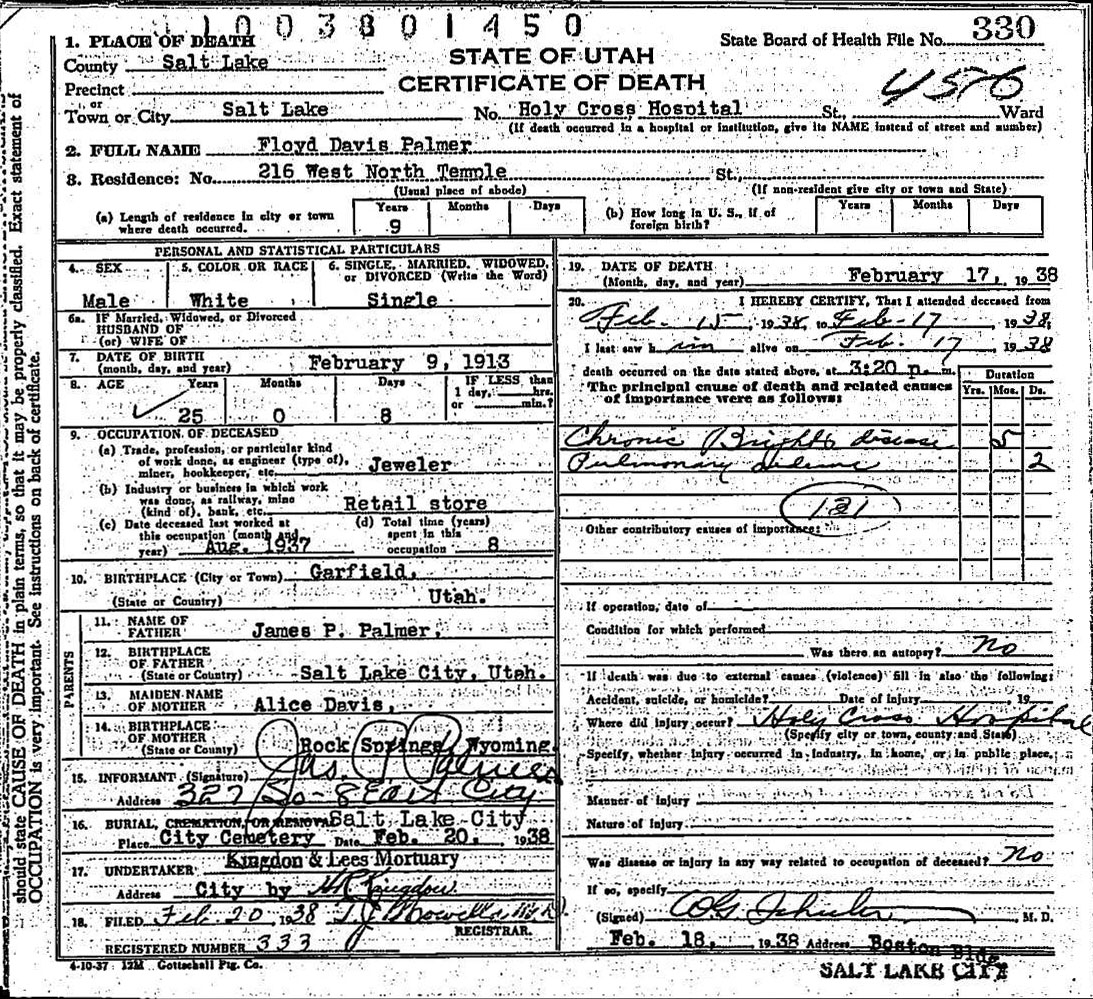 1003801450
1. PLACE OF DEATH
State Board of Health File No. 330
County Salt Lake
STATE OF UTAH
Precinct
CERTIFICATE OF DEATH
4576
or
Town or City Salt Lake No. Holy Cross Hospital St., Ward
(If death occurred in a hospital or institution, give its NAME instead of street and number)
2. FULL NAME Floyd Davis Palmer
3. Residence: No. 216 West North Temple St.,
(Usual place of abode) (If non-resident give city or town and State)
(a) Length of residence in city or town where death occurred. Years 9 Months Days
(b) How long in U. S., if of foreign birth? Years Months Days
PERSONAL AND STATISTICAL PARTICULARS
4. SEX 5. COLOR OR RACE 6. SINGLE, MARRIED, WIDOWED, or DIVORCED (Write the Word)
Male White Single
6a. IF Married, Widowed, or Divorced
HUSBAND OF
(or) WIFE OF
7. DATE OF BIRTH
(month, day, and year) February 9, 1913
8. AGE Years Months Days IF LESS than
1 day, hrs.
or min.?
25 0 8
9. OCCUPATION OF DECEASED
(a) Trade, profession, or particular kind
of work done, as engineer (type of),
miner, bookkeeper, etc. Jeweler
(b) Industry or business in which work
was done, as railway, mine
(kind of), bank, etc. Retail store
(c) Date deceased last worked at
this occupation (month and
year) Aug. 1937
(d) Total time (years)
spent in this
occupation 8
10. BIRTHPLACE (City or Town) Garfield,
(State or Country) Utah.
PARENTS
11. NAME OF
FATHER James P. Palmer,
12. BIRTHPLACE
OF FATHER
(State or Country) Salt Lake City, Utah.
13. MAIDEN NAME
OF MOTHER Alice Davis,
14. BIRTHPLACE
OF MOTHER
(State or Country) Rock Springs, Wyoming.
15. INFORMANT (Signature) Jas. P. Palmer
Address 327 So - 8 East City
16. BURIAL, CREMATION, OR REMOVAL Salt Lake City
Place City Cemetery Date Feb. 20, 1938
17. UNDERTAKER Kingdon & Lees Mortuary
Address City by H R Kingdon
18. FILED Feb 20, 1938
REGISTRAR.
REGISTERED NUMBER 333
4-10-37 12M Gottschall Ptg. Co.
19. DATE OF DEATH
(Month, day, and year) February 17, 1938
20. I HEREBY CERTIFY, That I attended deceased from
Feb. 15, 1938, to Feb-17, 1938,
I last saw him alive on Feb. 17 1938
death occurred on the date stated above, at 3:20 p. m.
The principal cause of death and related causes
of importance were as follows:
Duration
Yrs. Mos. Ds.
Chronic Brights disease 5
Pulmonary edema 2
131
Other contributory causes of importance:
If operation, date of
Condition for which performed
Was there an autopsy? No
If death was due to external causes (violence) fill in also the following:
Accident, suicide, or homicide? Date of Injury 19
Where did injury occur? Holy Cross Hospital
(Specify city or town, county and State)
Specify, whether injury occurred in industry, in home, or in public place,
Manner of injury
Nature of injury
Was disease or injury in any way related to occupation of deceased? No
If so, specify
(Signed) M. D.
Feb. 18, 1938 Address Boston Bldg
SALT LAKE CITY
should state CAUSE OF DEATH in plain terms, so that it may be properly classified. Exact statement of
OCCUPATION is very important. See instructions on back of certificate.